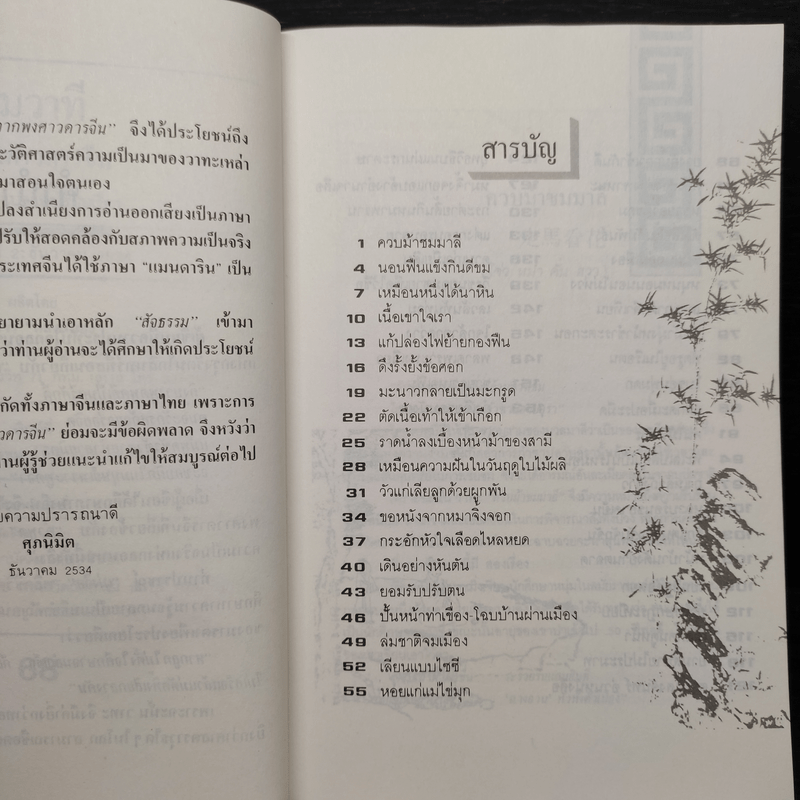 ากพงศาวดารจีน" จึงได้ประโยชน์ถึง
ะวัติศาสตร์ความเป็นมาของวาทะเหล่า
มาสอนใจตนเอง
ปลงสำเนียงการอ่านออกเสียงเป็นภาษา
ปรับให้สอดคล้องกับสภาพความเป็นจริง
ระเทศจีนได้ใช้ภาษา "แมนดาริน" เป็น
ยายามนำเอาหลัก "สัจธรรม" เข้ามา
ว่าท่านผู้อ่านจะได้ศึกษาให้เกิดประโยชน์
กัดทั้งภาษาจีนและภาษาไทย เพราะการ
วดารจีน" ย่อมจะมีข้อผิดพลาด จึงหวังว่า
านผู้รู้ช่วยแนะนำแก้ไขให้สมบูรณ์ต่อไป
ยความปรารถนาดี
ศุภนิมิต
ธันวาคม 2534
สารบัญ
1 ควบม้าชมมาลี
4 นอนฟืนแข็งกินดีขม
7 เหมือนหนึ่งได้นาหิน
10 เนื้อเขาใจเรา
13 แก้ปล่องไฟย้ายกองฟืน
16 ดึงรั้งยั้งข้อศอก
19 มะนาวกลายเป็นมะกรูด
22 ตัดเนื้อเท้าให้เข้าเกือก
25 ราดน้ำลงเบื้องหน้าม้าของสามี
28 เหมือนความฝันในวันฤดูใบไม้ผลิ
31 วัวแก่เลียลูกด้วยผูกพัน
34 ขอหนังจากหมาจิ้งจอก
37 กระอักหัวใจเลือดไหลหยด
40 เดินอย่างหันตัน
43 ยอมรับปรับตน
46 ปั้นหน้าท่าเขื่อง-โฉบบ้านผ่านเมือง
49 ล่มชาติจมเมือง
52 เลียนแบบไซซี
55 หอยแก่แม่ไข่มุก